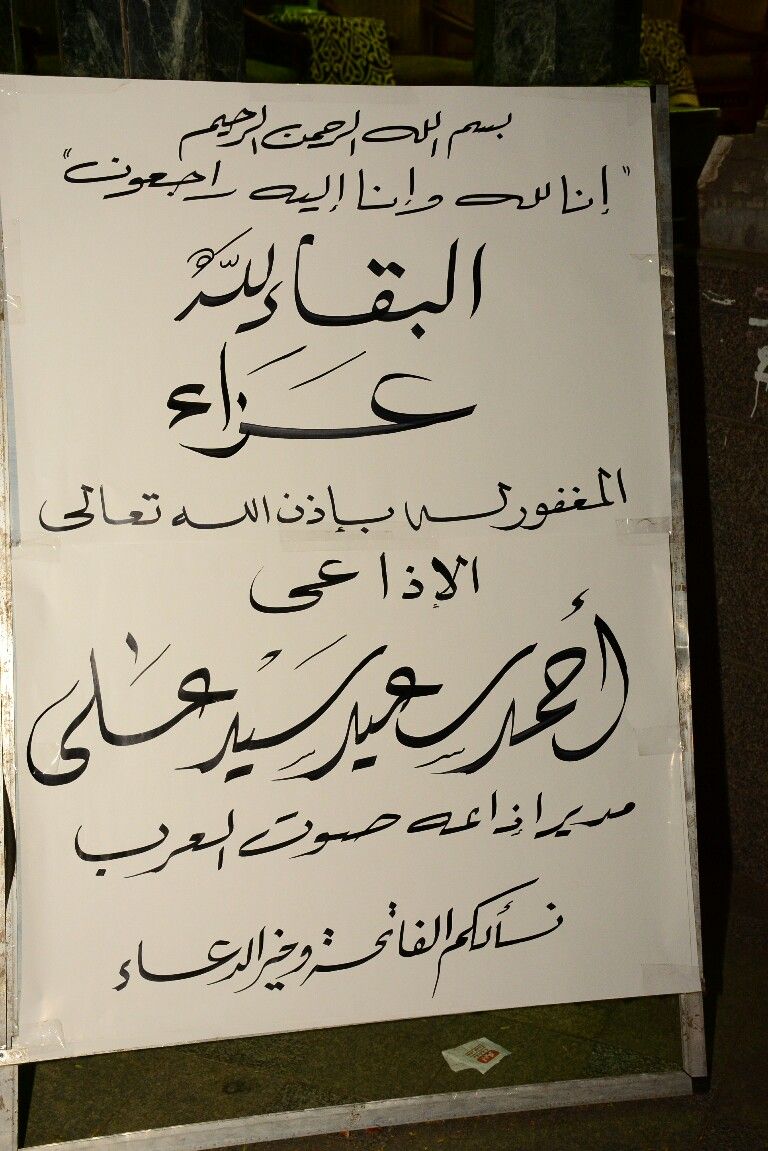 بسم الله الرحمن الرحيم
"إنا لله وإنا إليه راجعون"
البقاء لله
عزاء
المغفور له بإذن الله تعالى
الإذاعى
أحمد سعيد سيد على
مدير إذاعه صوت العرب
نسألكم الفاتحة وخير الدعاء